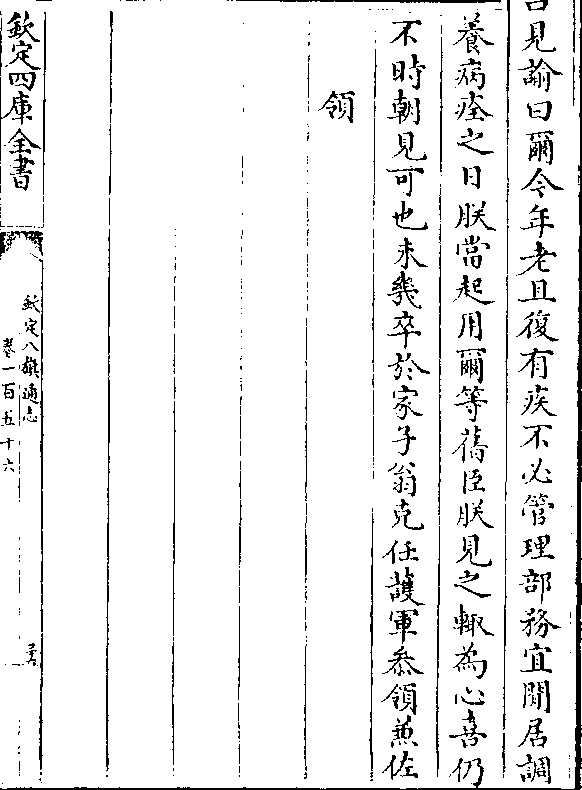 召見諭曰爾今年老且復有疾不必管理部務宜閒居調
養病痊之日朕當起用爾等舊臣朕見之輒為心喜仍
不時朝見可也未幾卒於家子翁克任護軍叅領兼佐
領
欽定四庫全書
欽定八旗通志
卷一百五十六